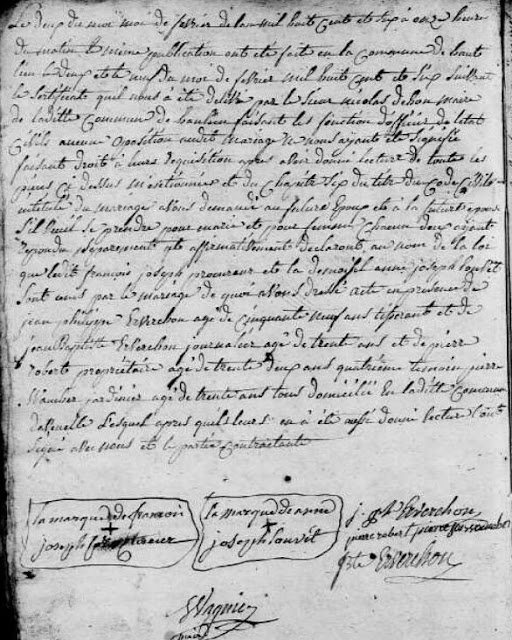 Le deux du même moi de fevrier de lan mil huit Cents et Six à onze heure
du matin le même publication ont ete faite en la Commune de haut
lieu le deux et le neuf du moi de fevrier mil huit Cent et Six suivant
le sertificate quil nous à ete delivré par le Sieur nicolas debon maire
de laditte Commune de hautlieu faisant les fonction dofficier de letat
Civils aucune opposition audit mariage ne nous ayante ete Signifiée
faisant droit à leurs requisition apres avoir donné lecture de toute les
pieces Cy dessus mentionnées et du Chapitre Six du titre du Code Civille
intitulé du mariage avons demandé au future Epoux et à la future epouse
S'il veuil se prendre pour marie et pour femme Chacun deux ayant
repondu separement et affirmativement declarons au nom de la loi
que ledit françois joseph procureur et la demoisel anne joseph Louvet
Sont unis par le mariage de quoi avons dressé acte en presence de
jean philippe Ververchon agé de Cinquante neuf ans tisserant et de
jean Baptiste Ververchon journalier agé de trente ans et de pierre
roberte propriétaire agé de trente deux ans quatrième temoin pierre
Wambez jardinier agé de trente ans tous domiciliés en laditte Commune
lesquel apres quil leurs en à eté aussi donné lecture l'ont
Signé avec nous et le partie Contractante
la marque de francois
joseph
la marque de anne
joseph Louvet
j. ph Ververchon
pierre robert pierre
Bte Ververchon
Wagnie
maire